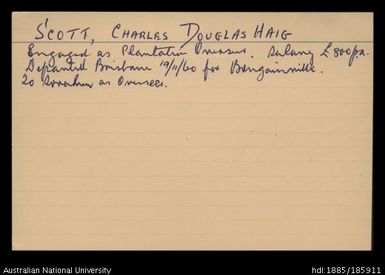 SCOTT, CHARLES DOUGLAS HAIG
Engaged as Plantation Overseer. Salary £800 p.a.
Departed Brisbane 19/11/60 for Bougainville.
To as Overseer.
Australian National University
hdl:1885/185911